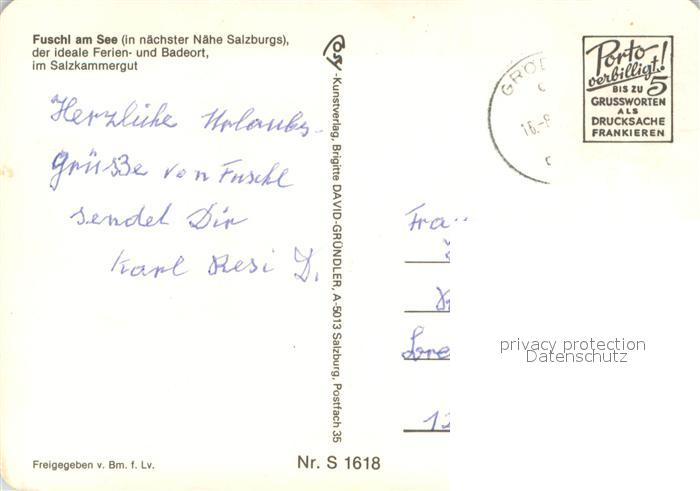 Fuschl am See (in nächster Nähe Salzburgs),
der ideale Ferien- und Badeort,
im Salzkammergut
Herzliche Urlaubs-
grüße von Fuschl
sendet Dir
Karl Resi D.
Cosy-Kunstverlag, Brigitte DAVID-GRÜNDLER, A-5013 Salzburg, Postfach 35
GRÖD
16.-8
Porto
verbilligt!
BIS ZU 5
GRUSSWORTEN
ALS
DRUCKSACHE
FRANKIEREN
Fra
privacy protection
Datenschutz
Freigegeben v. Bm. f. Lv.
Nr. S 1618